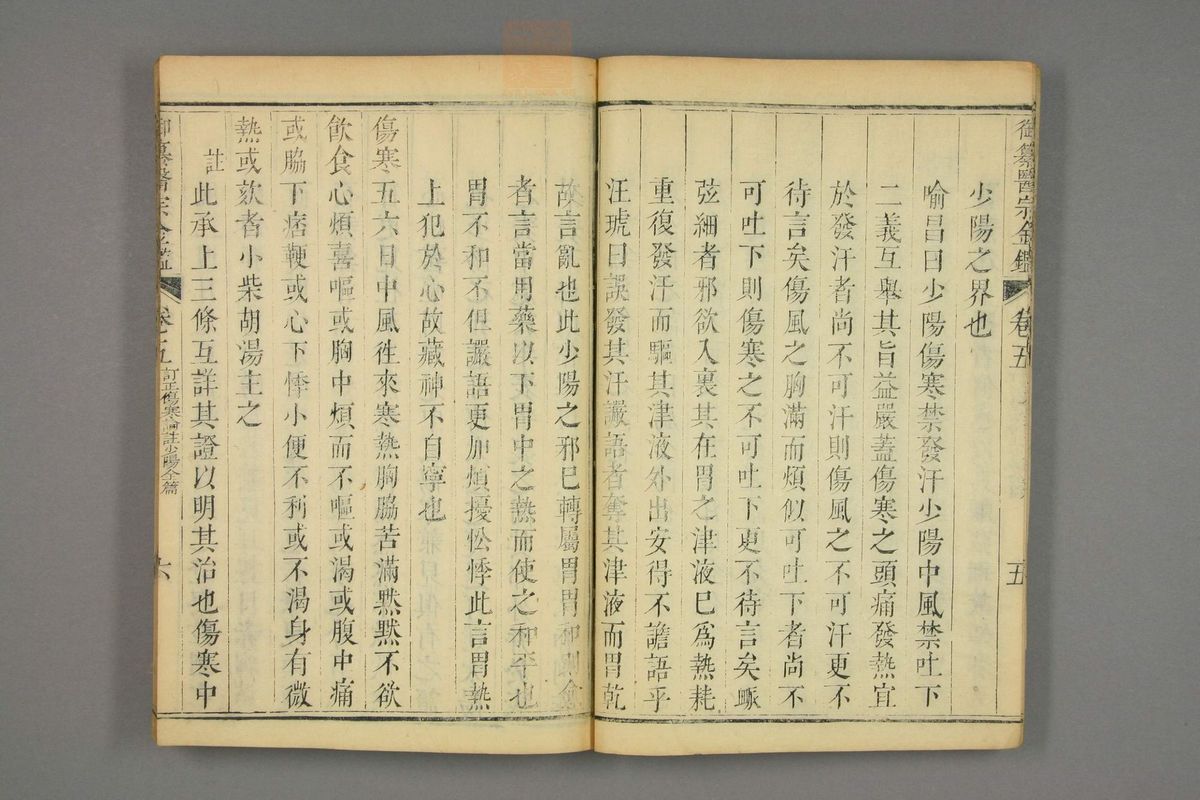 御纂醫宗金鑑 卷五 五
少陽之界也
喻昌曰少陽傷寒禁發汗少陽中風禁吐下
二義互舉其旨益嚴蓋傷寒之頭痛發熱宜
於發汗者尚不可汗則傷風之不可汗更不
待言矣傷風之胸滿而煩似可吐下者尚不
可吐下則傷寒之不可吐下更不待言矣脈
弦細者邪欲入裏其在胃之津液巳為熱耗
重復發汗而驅其津液外出安得不譫語乎
汪琥曰誤發其汗讝語者奪其津液而胃乾
故言亂也此少陽之邪巳轉屬胃胃和則愈
者言當用藥以下胃中之熱而使之和平也
胃不和不但讝語更加煩擾忪悸此言胃熱
上犯於心故藏神不自寧也
傷寒五六日中風徃來寒熱胸脇苦滿默默不欲
飲食心煩喜嘔或胸中煩而不嘔或渴或腹中痛
或脇下痞鞕或心下悸小便不利或不渴身有微
熱或欬者小柴胡湯主之
註 此承上三條互詳其證以明其治也傷寒中
御纂醫宗金鑑 卷五 訂正傷寒論註少陽全篇 六